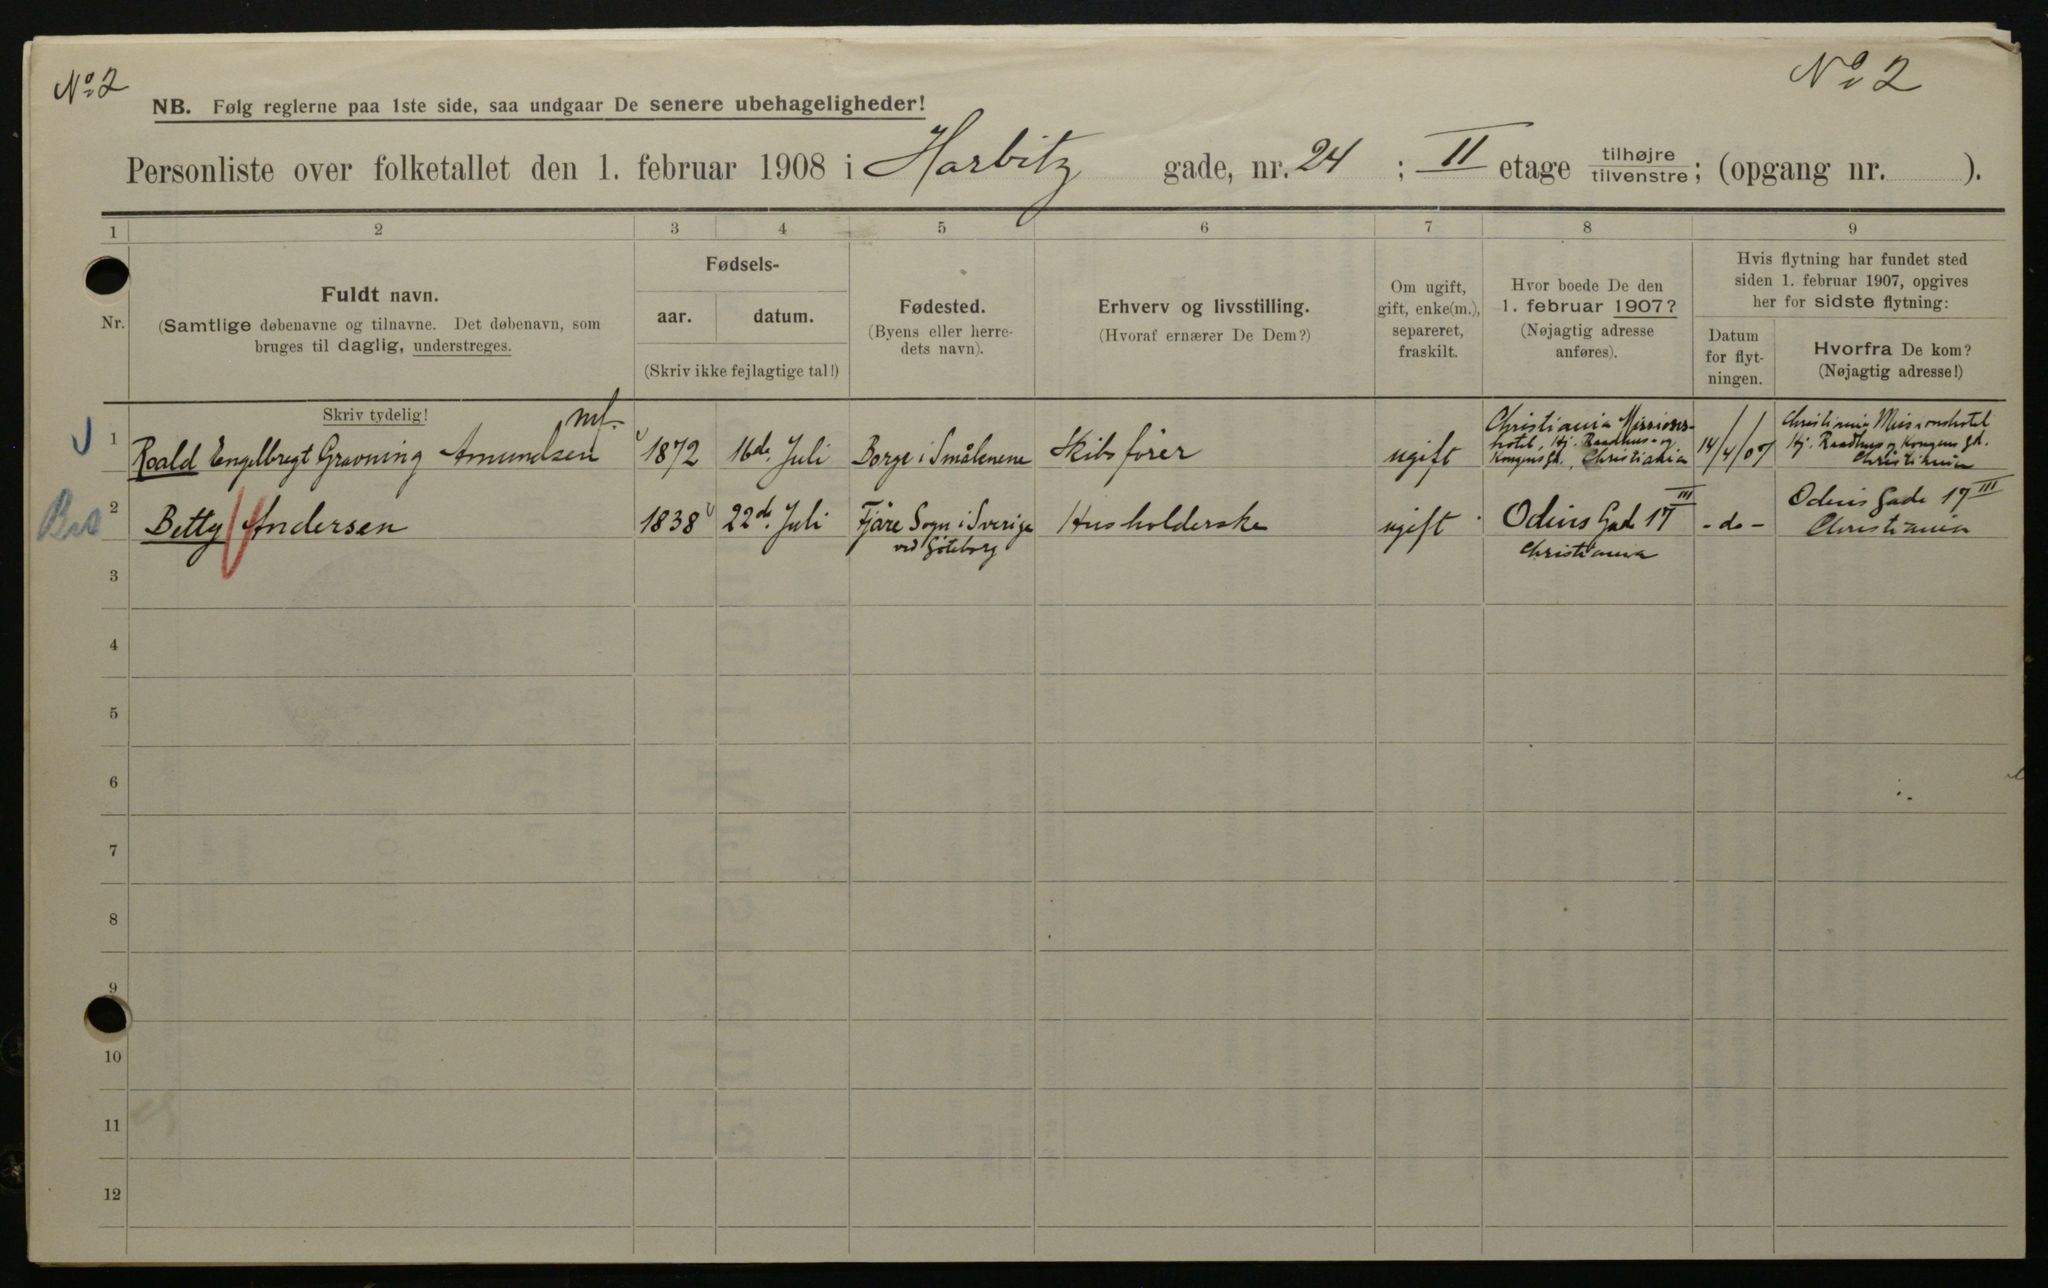 No 2
No 2
NB. Følg reglerne paa 1ste side, saa undgaar De senere ubehageligheder!
Personliste over folketallet den 1. februar 1908 i Harbitz gade, nr. 24 ; II etage tilhøjre tilvenstre; (opgang nr. ).
1 2 3 4 5 6 7 8 9
Nr.
Fuldt navn.
(Samtlige døbenavne og tilnavne. Det døbenavn, som
bruges til daglig, understreges.
Skriv tydelig!
Fødsels-
aar. datum.
(Skriv ikke fejlagtige tal!)
Fødested.
(Byens eller herre-
dets navn).
Erhverv og livsstilling.
(Hvoraf ernærer De Dem?)
Om ugift,
gift, enke(m.),
separeret,
fraskilt.
Hvor boede De den
1. februar 1907?
(Nøjagtig adresse
anføres).
Hvis flytning har fundet sted
siden 1. februar 1907, opgives
her for sidste flytning:
Datum
for flyt-
ningen.
Hvorfra De kom?
(Nøjagtig adresse!)
1 Roald Engelbregt Gravning Amundsen 1872 16de Juli Borge i Smålenene Skibsfører ugift
Christiania Missions-
hotel, Hj. Raadhus- og
Kongensgd., Christiania
14/4/07
Christiania Missionshotel
Hj. Raadhus og Kongens gd.
Christiania
2 Betty Andersen 1838 22de Juli Fjäre Sogn i Sverige
ved Göteborg
Husholderske ugift
Odins Gade 17 III
Christiania
- do -
Odins Gade 17 III
Christiania
3
4
5
6
7
8
9
10
11
12